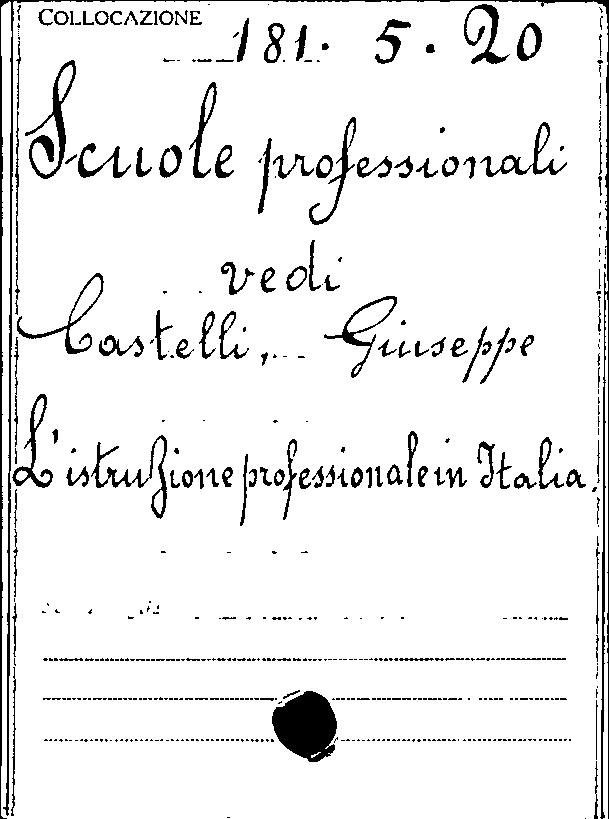 COLLOCAZIONE 181. 5. 20
Scuole professionali
vedi
Castelli, Giuseppe
L'istruzione professionale in Italia.